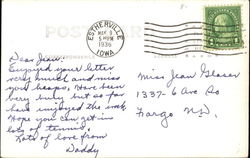 POST CARD
ESTHERVILLE
MAY 9
5 PM
1936
IOWA
Dear Jean,
Enjoyed your letter
very much and miss
you heaps. Have been
very busy but so far
have enjoyed the work.
Hope you can get in
lots of tennis.
Lots of love from
Daddy
Miss Jean Glaser
1337-6 Ave So
Fargo N.D.